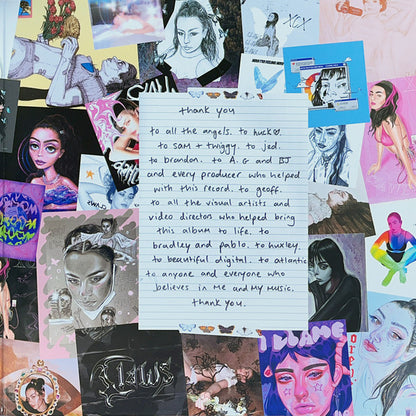 XCX
thank you
to all the angels. to huck♡.
to sam + twiggy. to jed.
to brandon. to A.G and BJ
and every producer who helped
with this record. to geoff.
to all the visual artists and
video directors who helped bring
this album to life. to
bradley and pablo. to huxley.
to beautiful digital. to atlantic
to anyone and everyone who
believes in me and my music.
thank you.
CLAWS
I BLAME